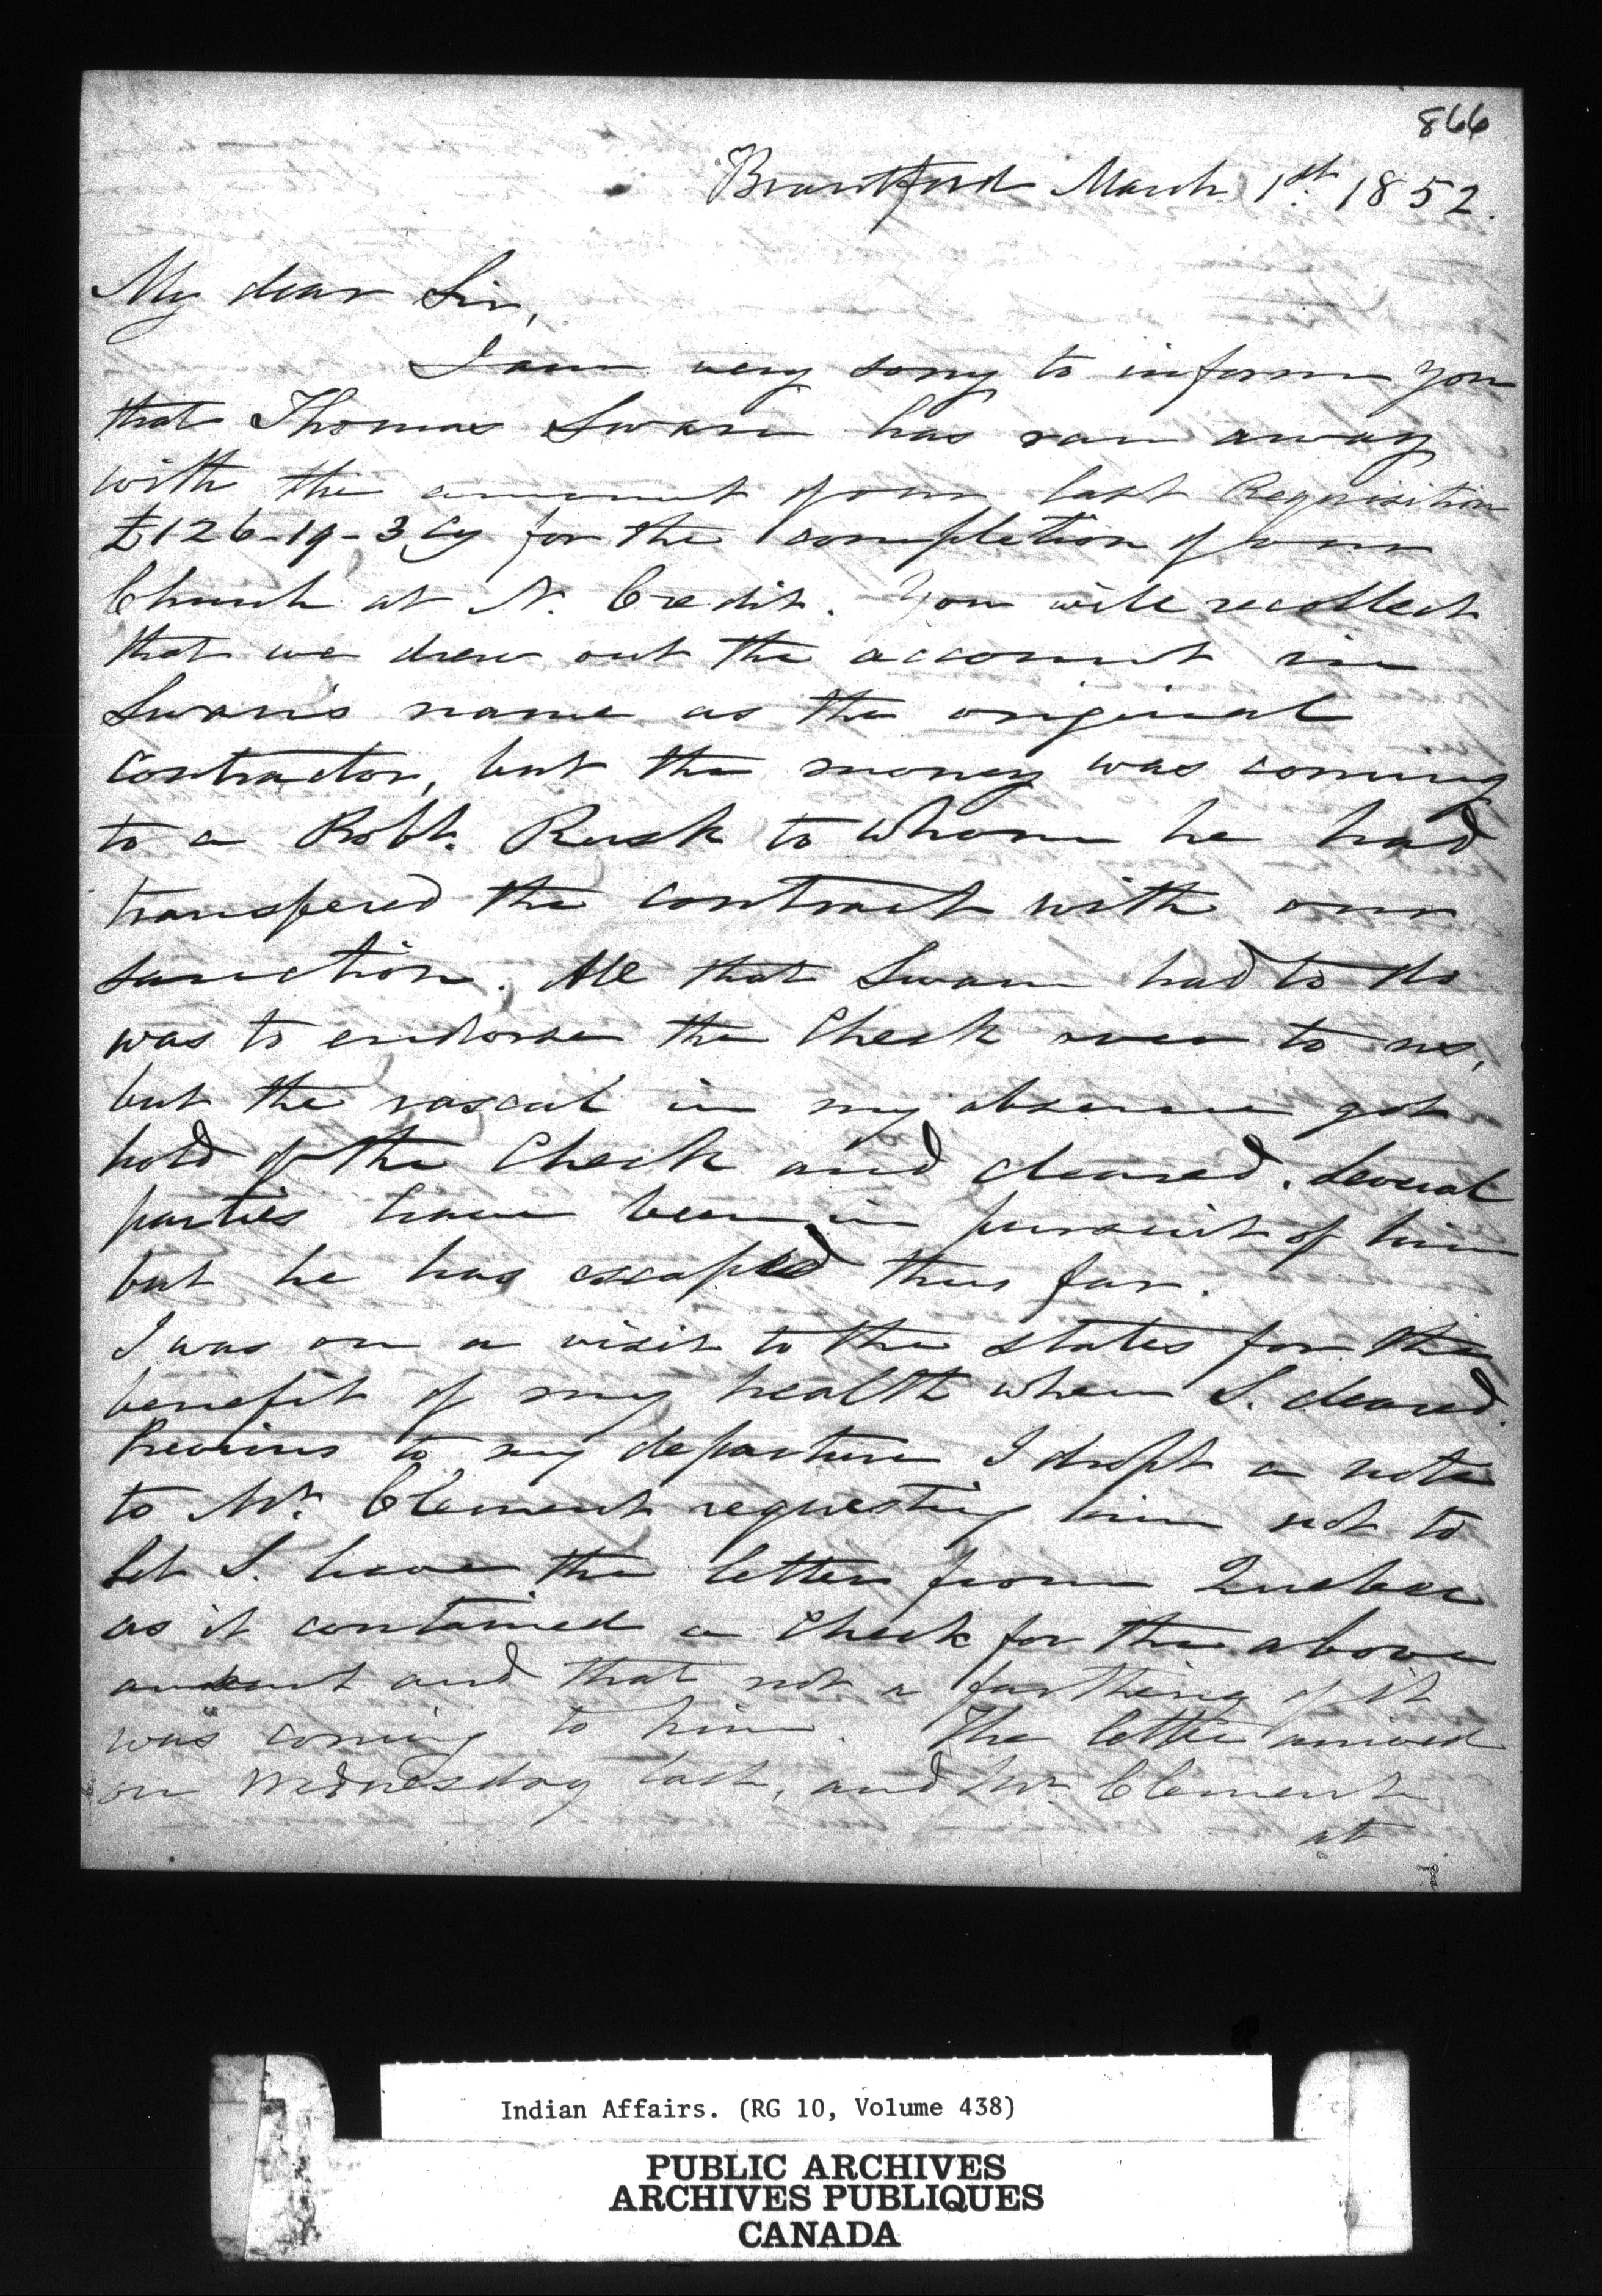 866
Brantford March 1st 1852.
My dear Sir,
I am very sorry to inform you
that Thomas Swan has ran away
with the amount of our last Requisition
£126-19-3 Cy for the completion of our
Church at N. Credit. You will recollect
that we drew out the account in
Swan's name as the original
contractor, but the money was coming
to a Robt. Rusk to whom he had
transfered the contract with our
sanction. All that Swan had to do
was to endorse the Check over to us,
but the rascal in my absence got
hold of the Check and cleared. Several
parties have been in pursuit of him
but he has escaped thus far.
I was on a visit to the states for the
benefit of my health when S. cleared.
Previous to my departure I dropt a note
to Mr. Clement requesting him not to
let S. have the letter from Quebec
as it contained a Check for the above
amount and that not a farthing of it
was coming to him. The letter arrived
on Wednesday last, and Mr. Clement
at
Indian Affairs. (RG 10, Volume 438)
PUBLIC ARCHIVES
ARCHIVES PUBLIQUES
CANADA